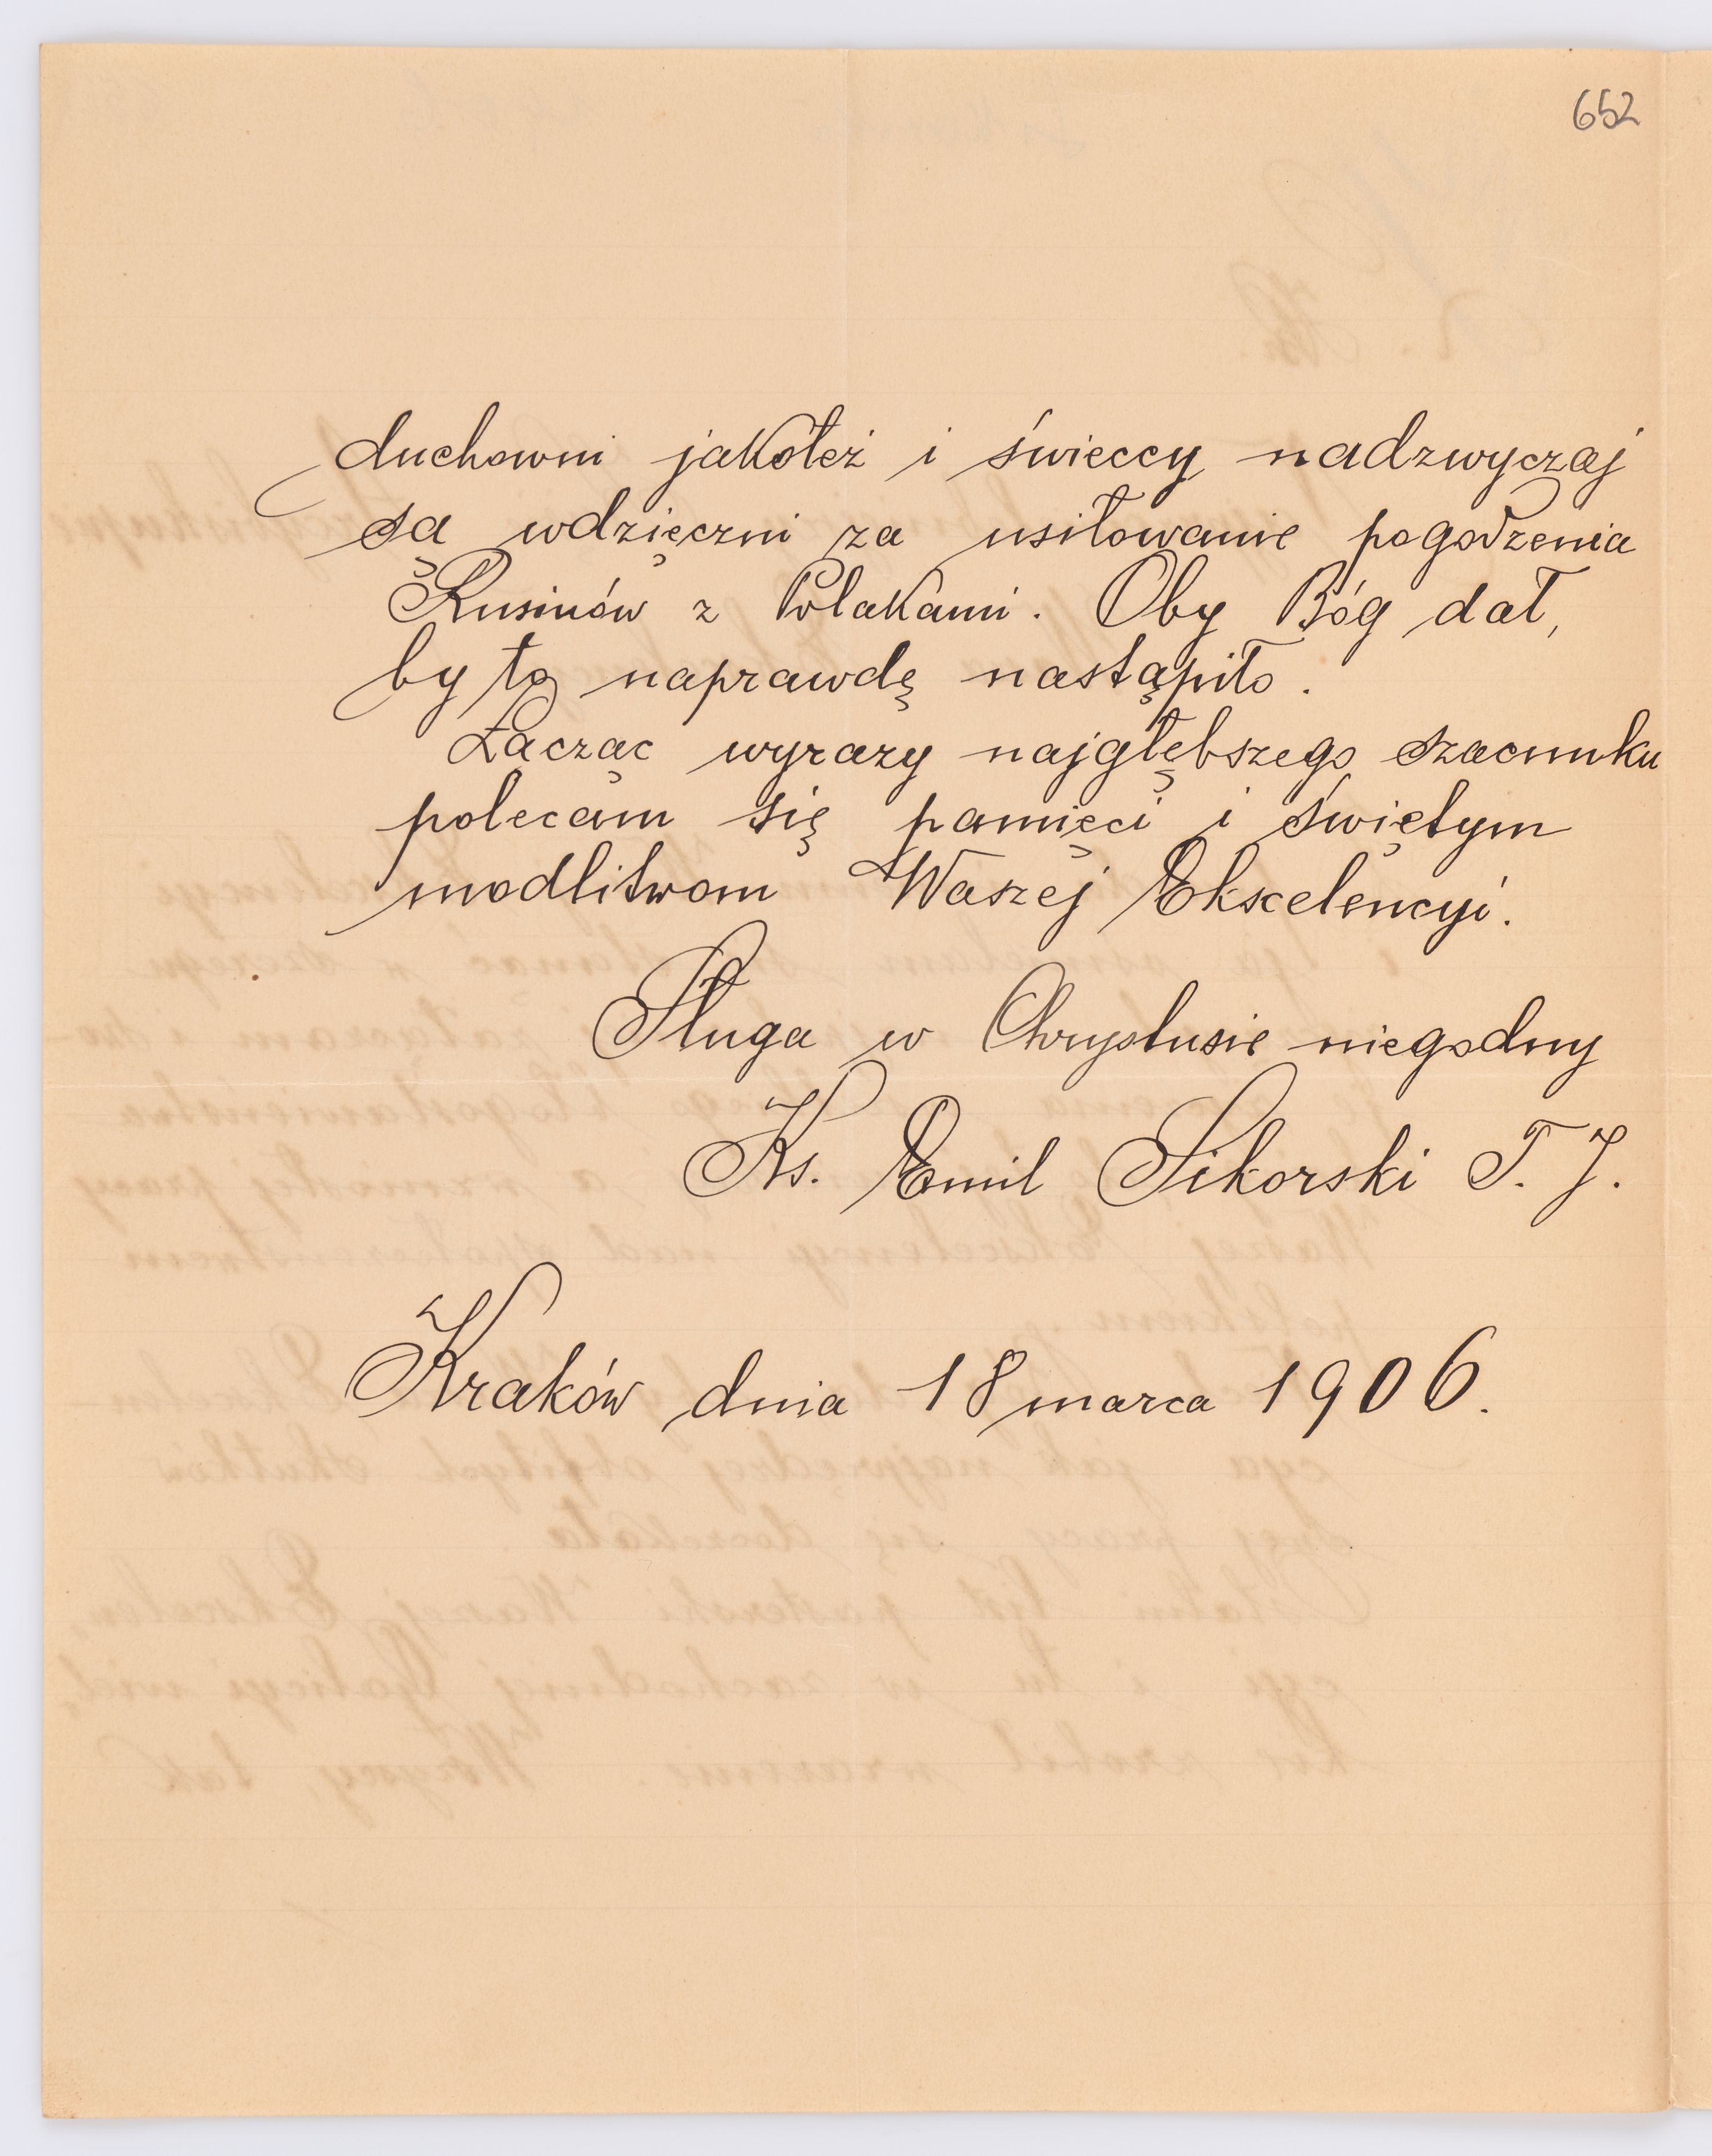 652
duchowni jakoteż i świeccy nadzwyczaj
są wdzięczni za usiłowanie pogodzenia
Rusinów z Polakami. Oby Bóg dał,
by to naprawdę nastąpiło.
Łącząc wyrazy najgłębszego szacunku
polecam się pamięci i świętym
modlitwom Waszej Ekscelencyi.
Sługa w Chrystusie niegodny
Ks. Emil Sikorski T. J.
Kraków dnia 18 marca 1906.